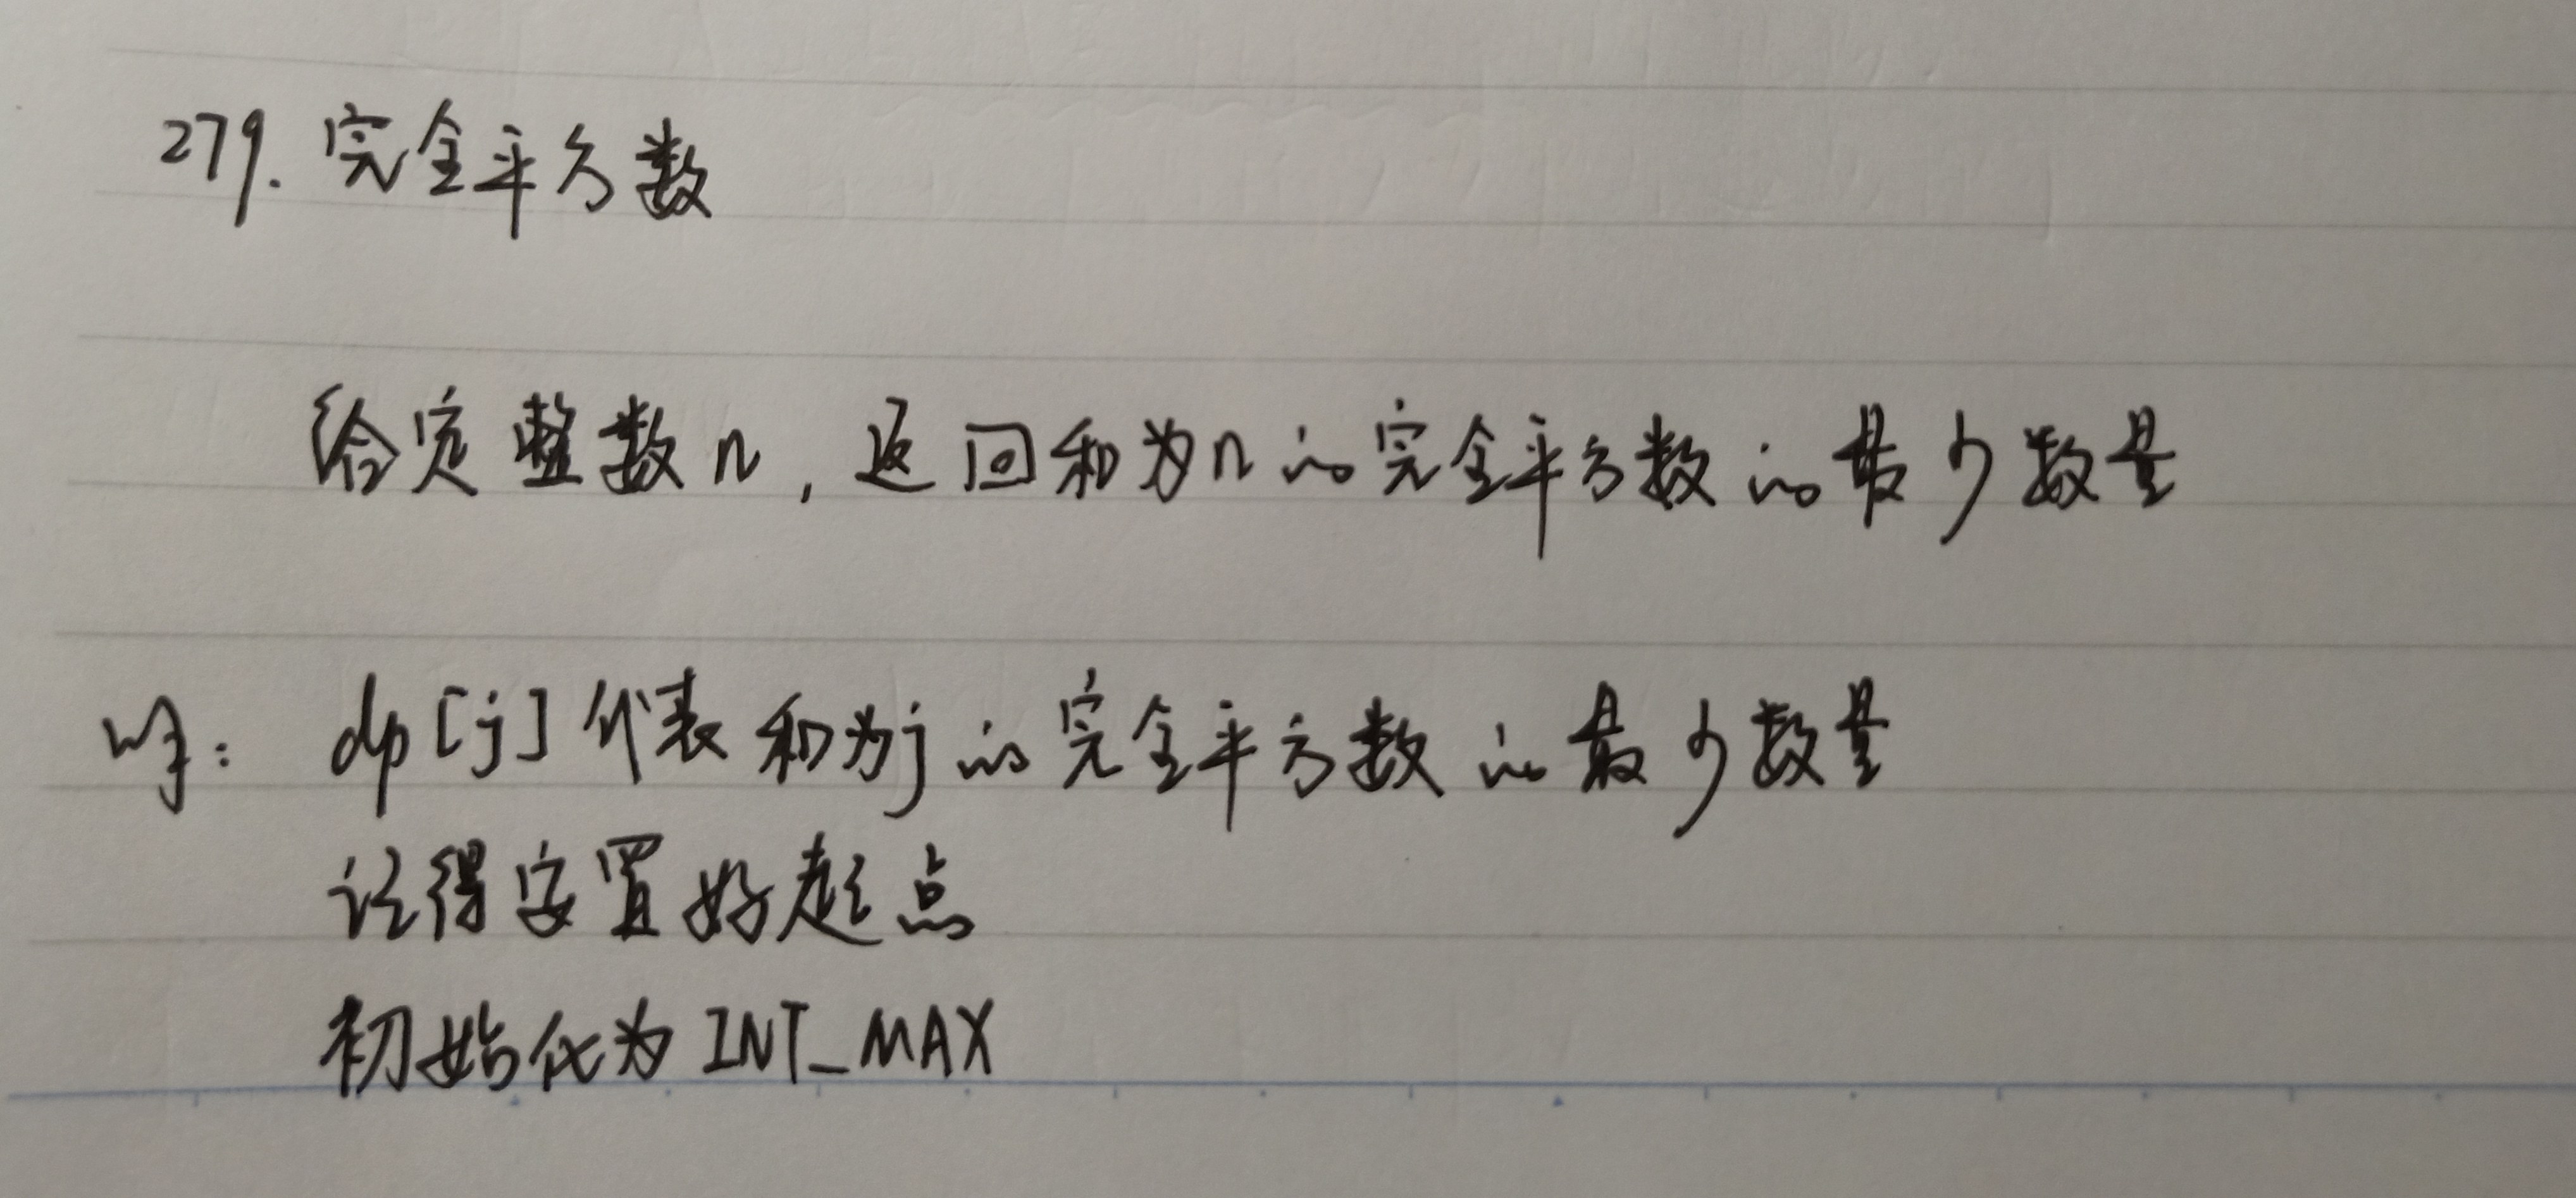 279. 完全平方数
给定整数n，返回和为n的完全平方数的最少数量
dp[j]代表和为j的完全平方数的最少数量
记得安置好起点
初始化为INT_MAX